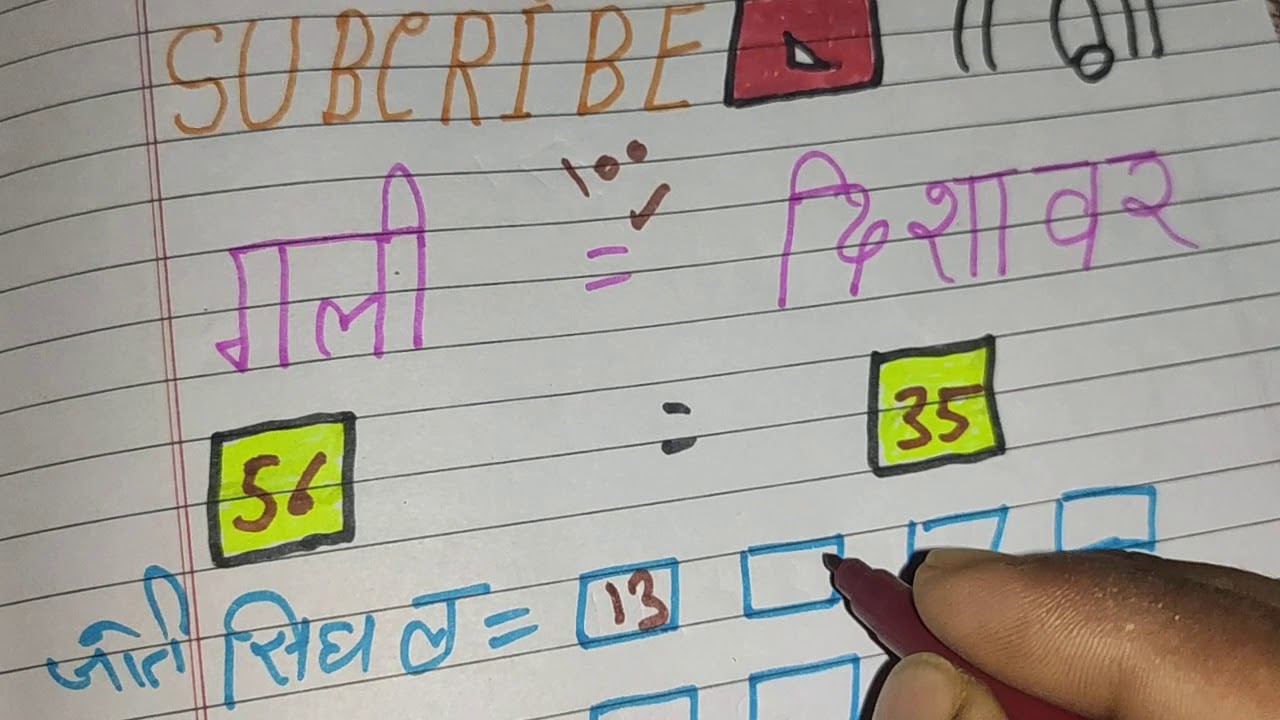 SUBCRIBE
१००
गली = दिशावर
56 : 35
जोती सिघल = 13